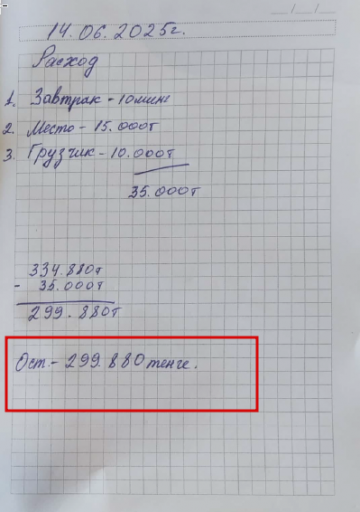 14.06.2025г.
Расход
1. Завтрак - 10мин
2. Место - 15.000т
3. Грузчик - 10.000т
35.000т
334.880т
- 35.000т
299.880т
Ост - 299.880 тенге.